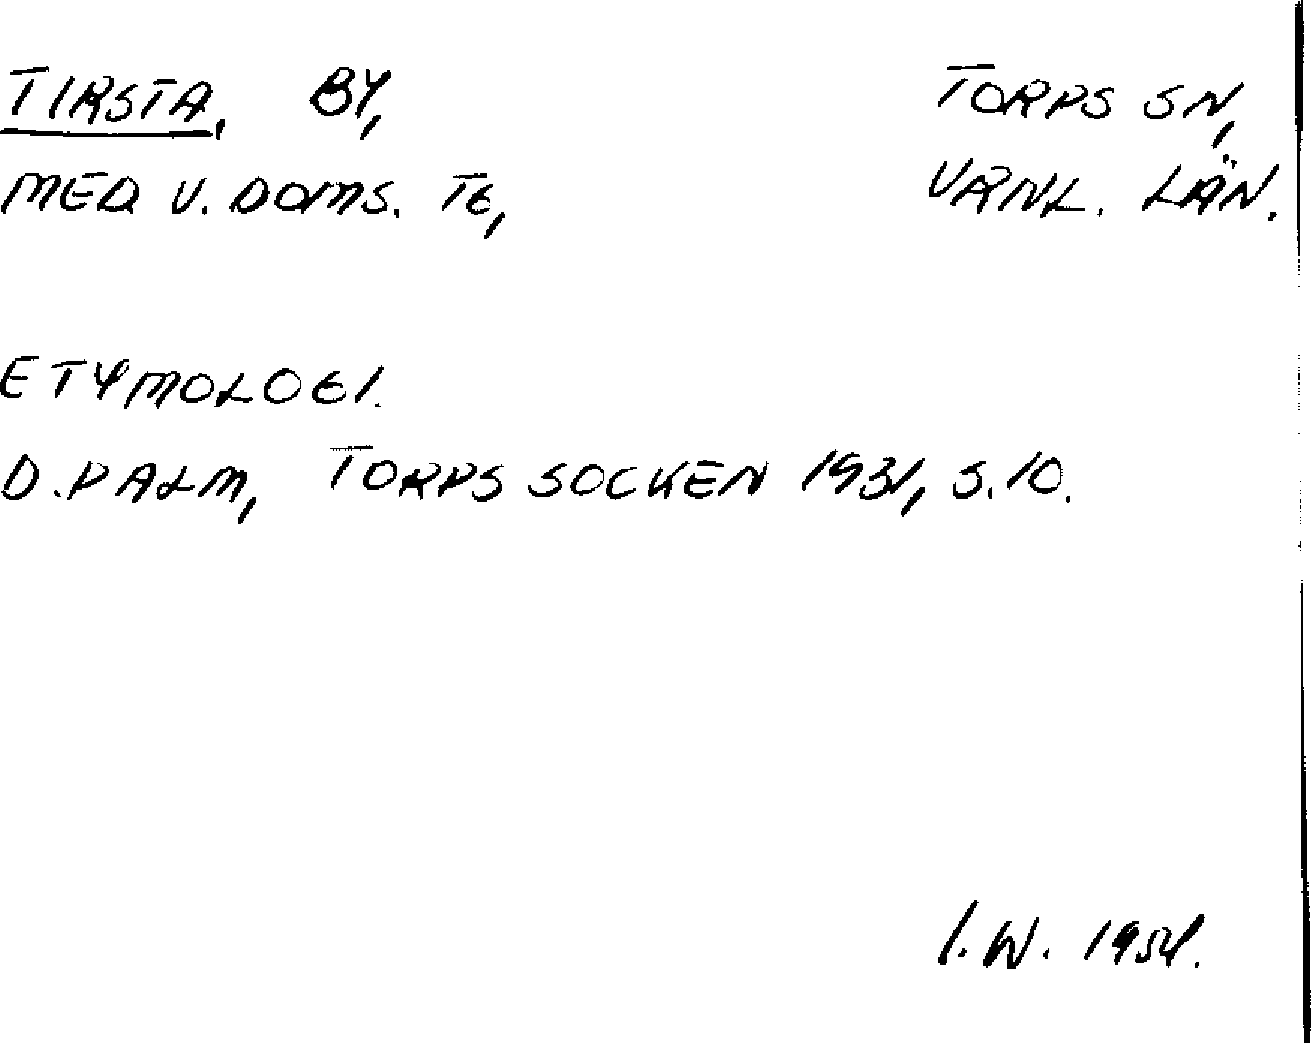 TIRSTA, BY, TORPS SN,
MED V. DOMS. TG, VRNL. LÄN.
ETYMOLOGI.
D. PALM, TORPS SOCKEN 1931, S. 10.
I. W. 1954.